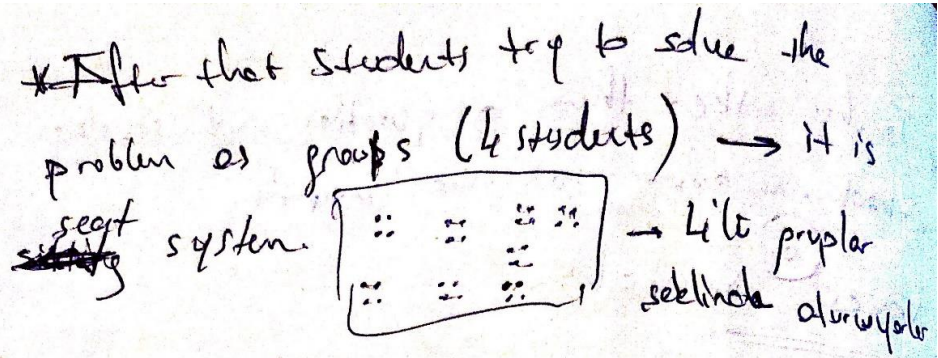 * After that students try to solve the
problem as groups (4 students) → it is
seat system. → 4'lü gruplar
şeklinde oturuyorlar